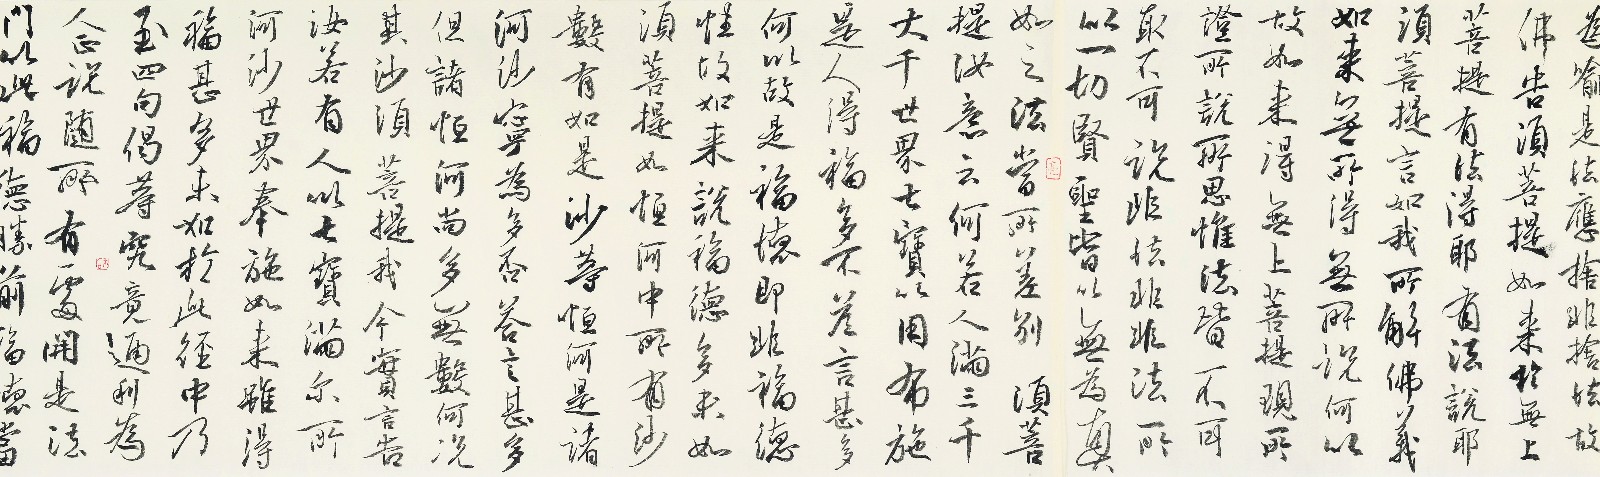 為喻是法應捨非捨法故
佛告須菩提如来於無上
菩提有法得耶有法說耶
須菩提言如我所解佛義
如来無所得無所説何以
故如来得無上菩提現所
證所說所思惟法皆不可
取不可説非法非非法所
以一切賢聖皆以無為真
如之法當所差別 須菩
提汝意云何若人滿三千
大千世界七寶以用布施
是人得福多不答言甚多
何以故是福德即非福德
性故如来說福德多来如
須菩提如恒河中所有沙
數有如是沙等恒河是諸
河沙寧為多否答言甚多
但諸恒河尚多無數何况
其沙須菩提我今實言告
汝若有人以七寶滿尔所
河沙世界奉施如来雖得
福甚多来如於此經中乃
至四句偈等究竟通利為
人説随所有處開是法
門以此福德勝前福德當